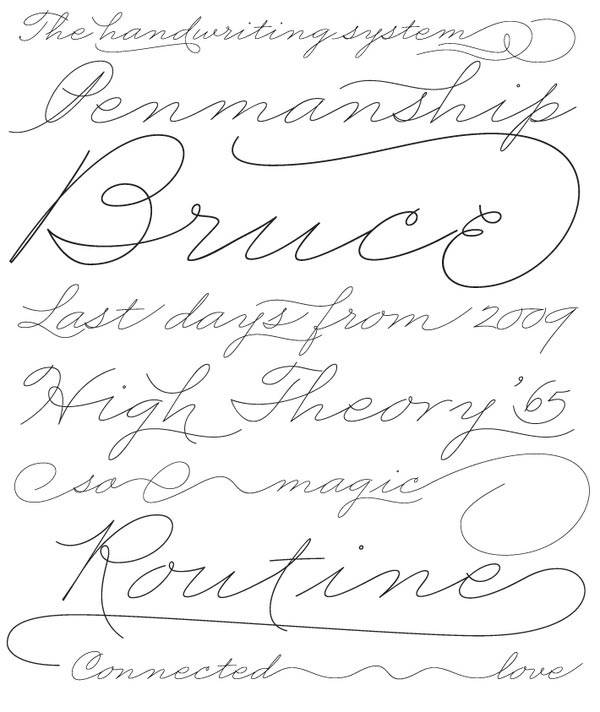 The handwriting system
Penmanship
Bruce
Last days from 2009
High Theory '65
so magic
Routine
Connected love